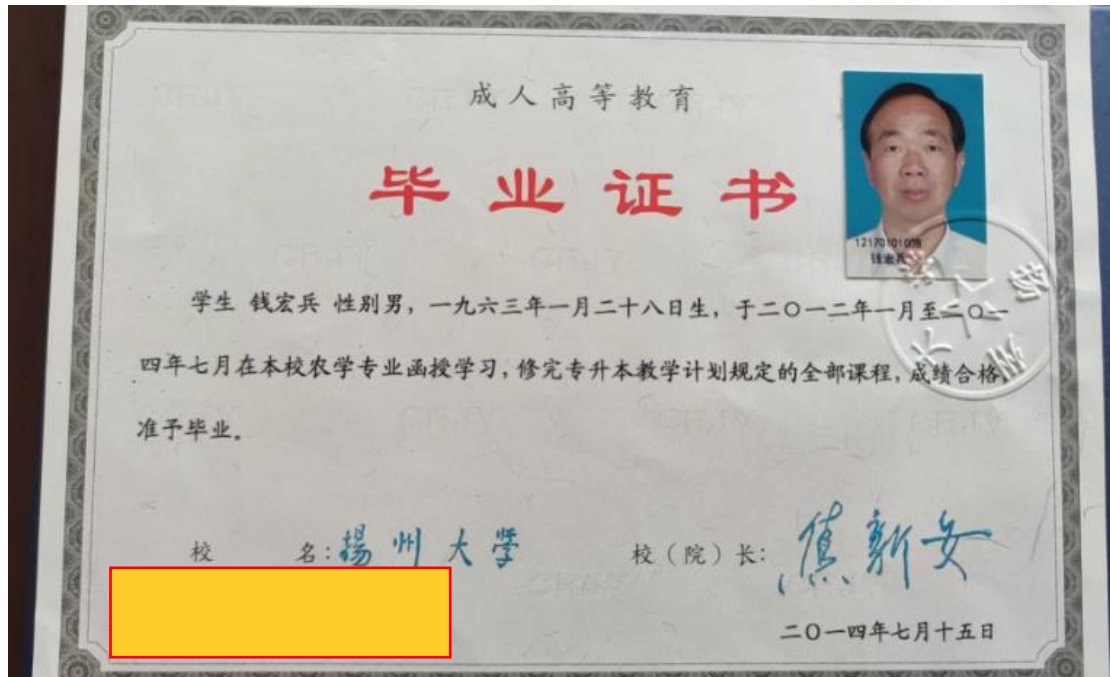 成人高等教育
毕业证书
12170101009
钱宏兵
学生 钱宏兵 性别男，一九六三年一月二十八日生，于二〇一二年一月至二〇一
四年七月在本校农学专业函授学习，修完专升本教学计划规定的全部课程，成绩合格，
准予毕业。
校 名：揚州大学
校（院）长：焦新安
二〇一四年七月十五日